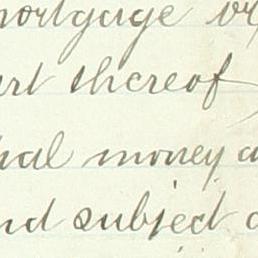 mortgage or
art thereof
pal money a
nd subject